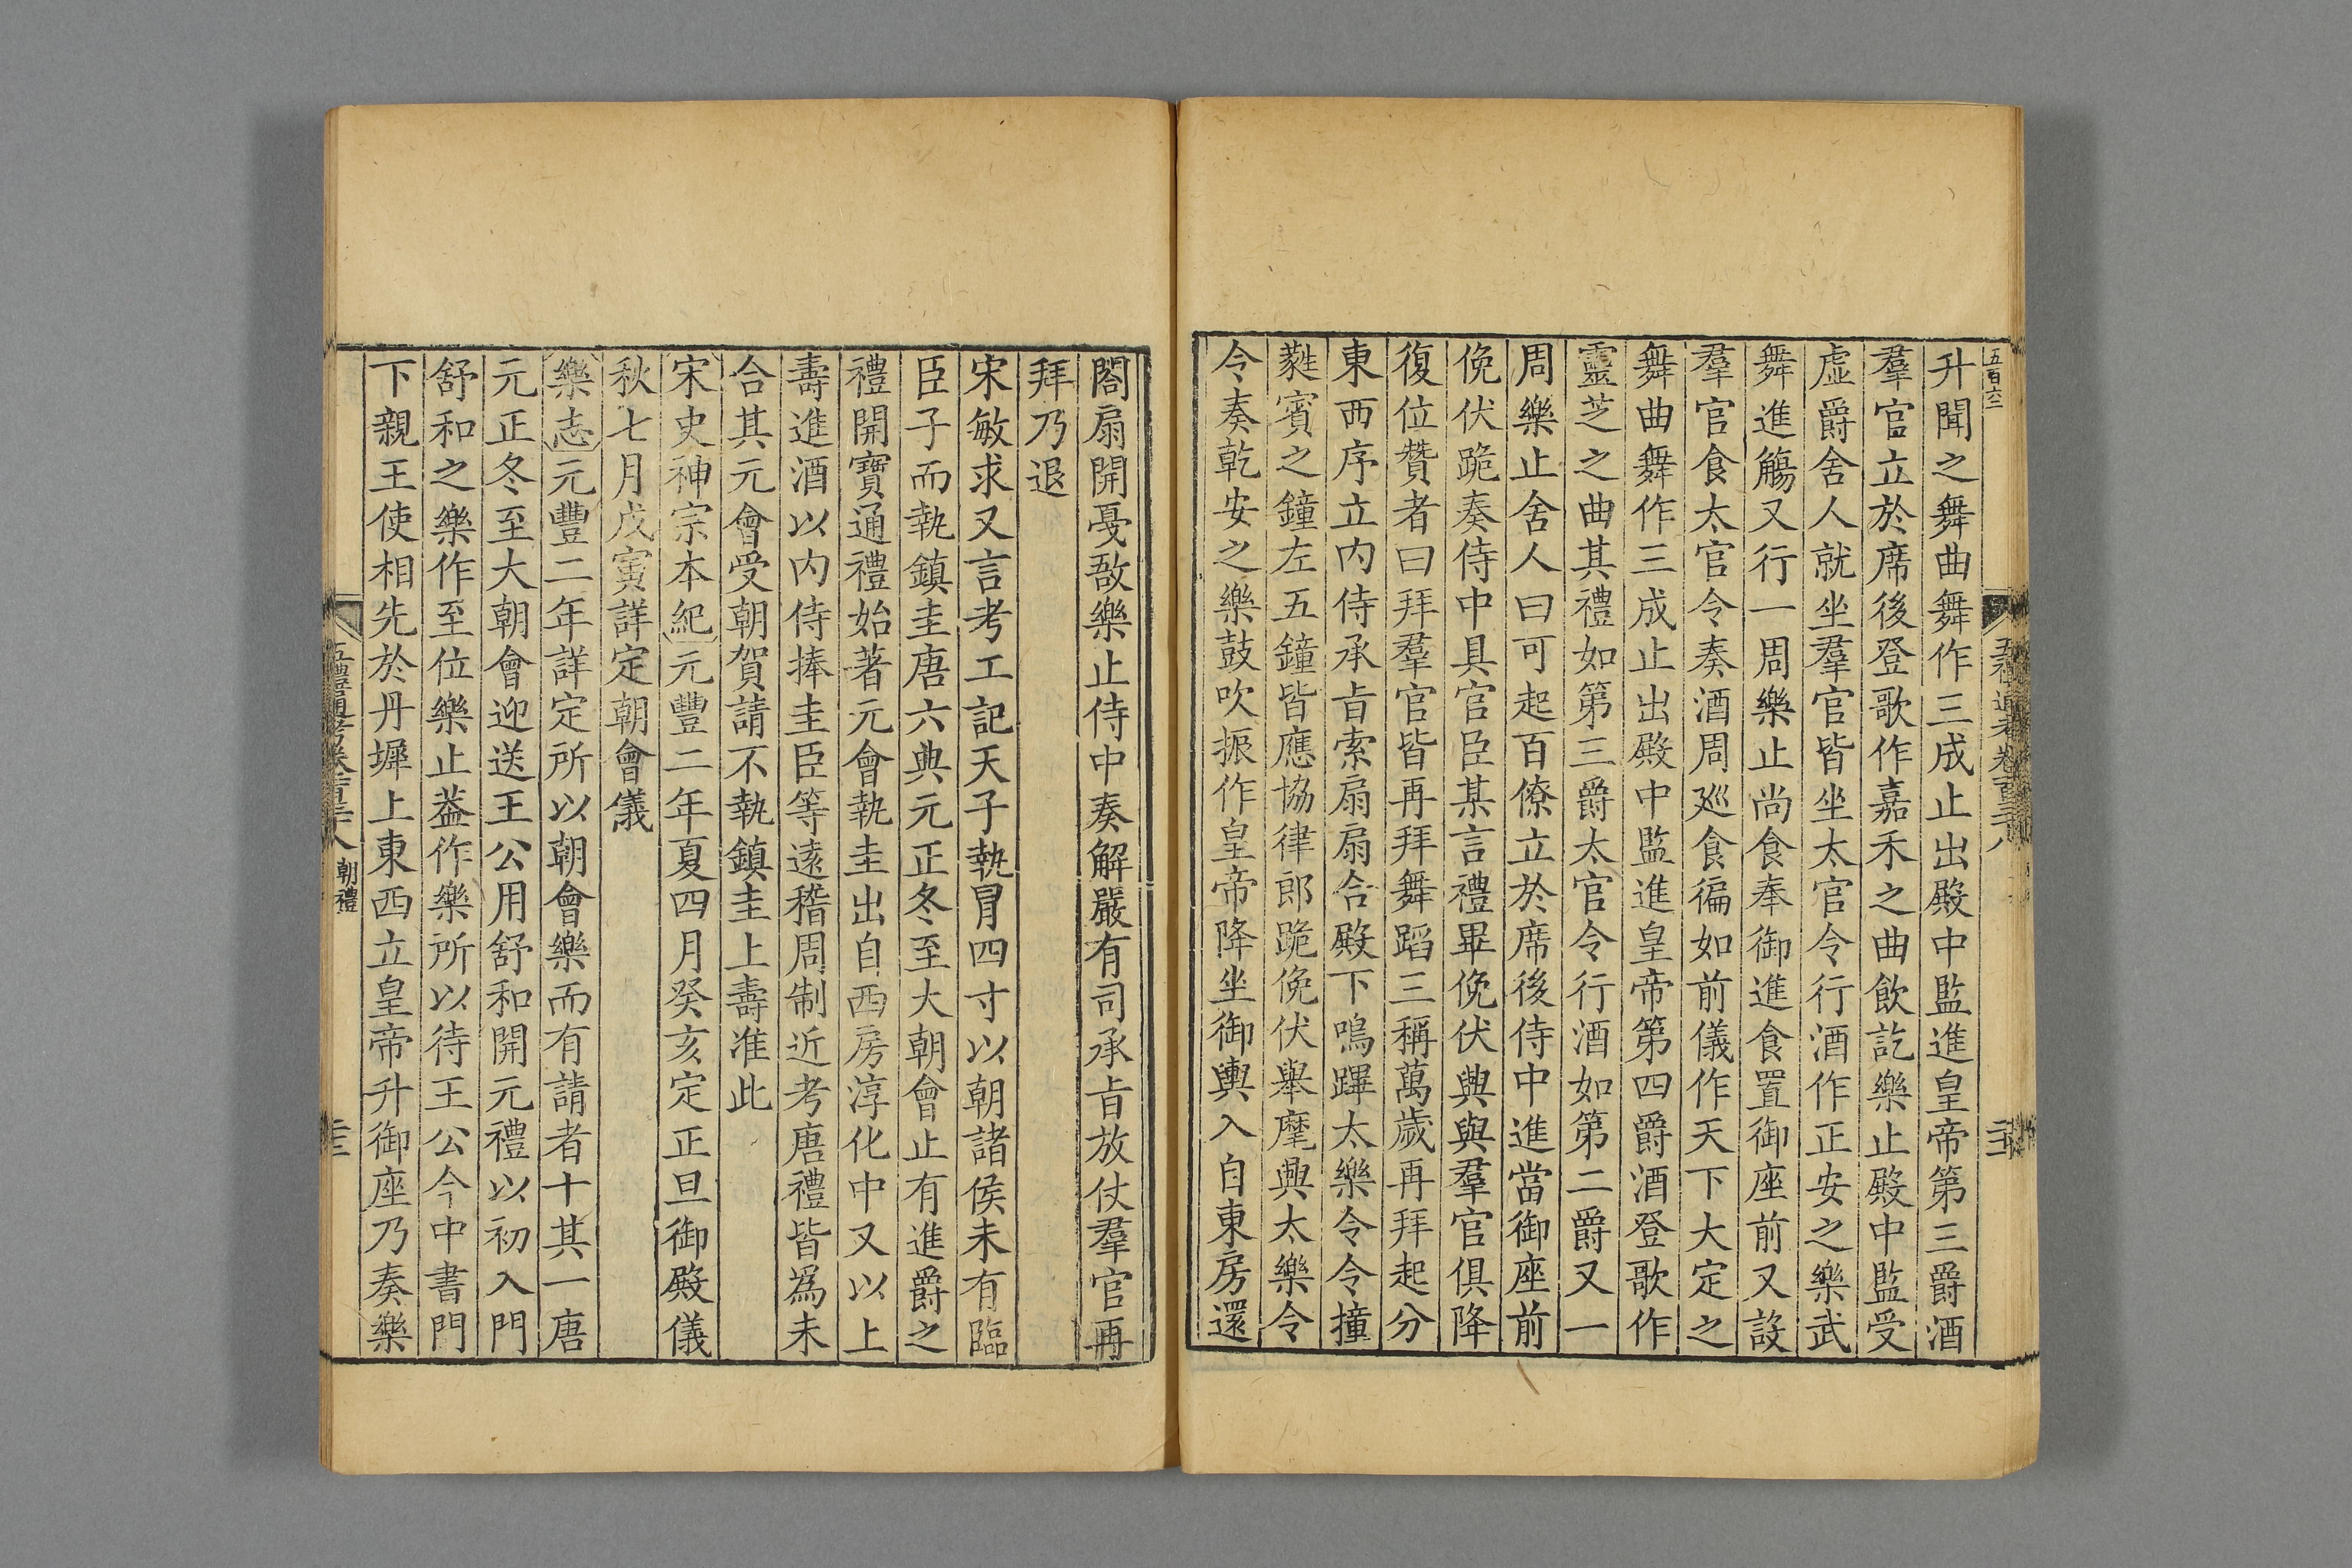 五百六二
升聞之舞曲舞作三成止出殿中監進皇帝第三爵酒
羣官立於席後登歌作嘉禾之曲飲訖樂止殿中監受
虛爵舍人就坐羣官皆坐太官令行酒作正安之樂武
舞進觴又行一周樂止尚食奉御進食置御座前又設
羣官食太官令奏酒周廵食徧如前儀作天下大定之
舞曲舞作三成止出殿中監進皇帝第四爵酒登歌作
靈芝之曲其禮如第三爵太官令行酒如第二爵又一
周樂止舍人曰可起百僚立於席後侍中進當御座前
俛伏跪奏侍中具官臣某言禮畢俛伏興與羣官俱降
復位贊者曰拜羣官皆再拜舞蹈三稱萬歲再拜起分
東西序立内侍承㫖索扇扇合殿下鳴蹕太樂令令撞
蕤賓之鐘左五鐘皆應協律郎跪俛伏舉麾興太樂令
令奏乾安之樂鼓吹振作皇帝降坐御輿入自東房還
閤扇開戞敔樂止侍中奏解嚴有司承㫖放仗羣官再
拜乃退
宋敏求又言考工記天子執冒四寸以朝諸侯未有臨
臣子而執鎮圭唐六典元正冬至大朝會止有進爵之
禮開寶通禮始著元會執圭出自西房淳化中又以上
壽進酒以内侍捧圭臣等遠稽周制近考唐禮皆爲未
合其元會受朝賀請不執鎮圭上壽准此
宋史神宗本紀元豐二年夏四月癸亥定正旦御殿儀
秋七月戊寅詳定朝會儀
樂志元豐二年詳定所以朝會樂而有請者十其一唐
元正冬至大朝會迎送王公用舒和開元禮以初入門
舒和之樂作至位樂止葢作樂所以待王公今中書門
下親王使相先於丹墀上東西立皇帝升御座乃奏樂
朝禮